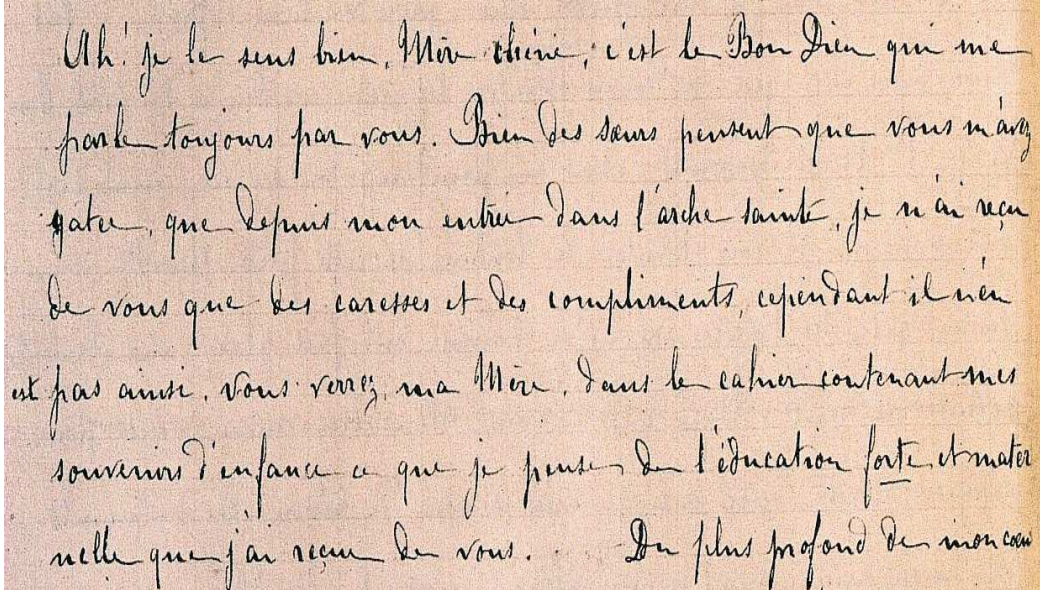 Ah! je le sens bien, Mère chérie, c'est le Bon Dieu qui me
parle toujours par vous. Bien des sœurs pensent que vous m'avez
gâtée, que depuis mon entrée dans l'arche sainte, je n'ai reçu
de vous que des caresses et des compliments, cependant il n'en
est pas ainsi, vous verrez, ma Mère, dans le cahier contenant mes
souvenirs d'enfance ce que je pense de l'éducation forte et mater
nelle que j'ai reçue de vous. Du plus profond de mon cœur